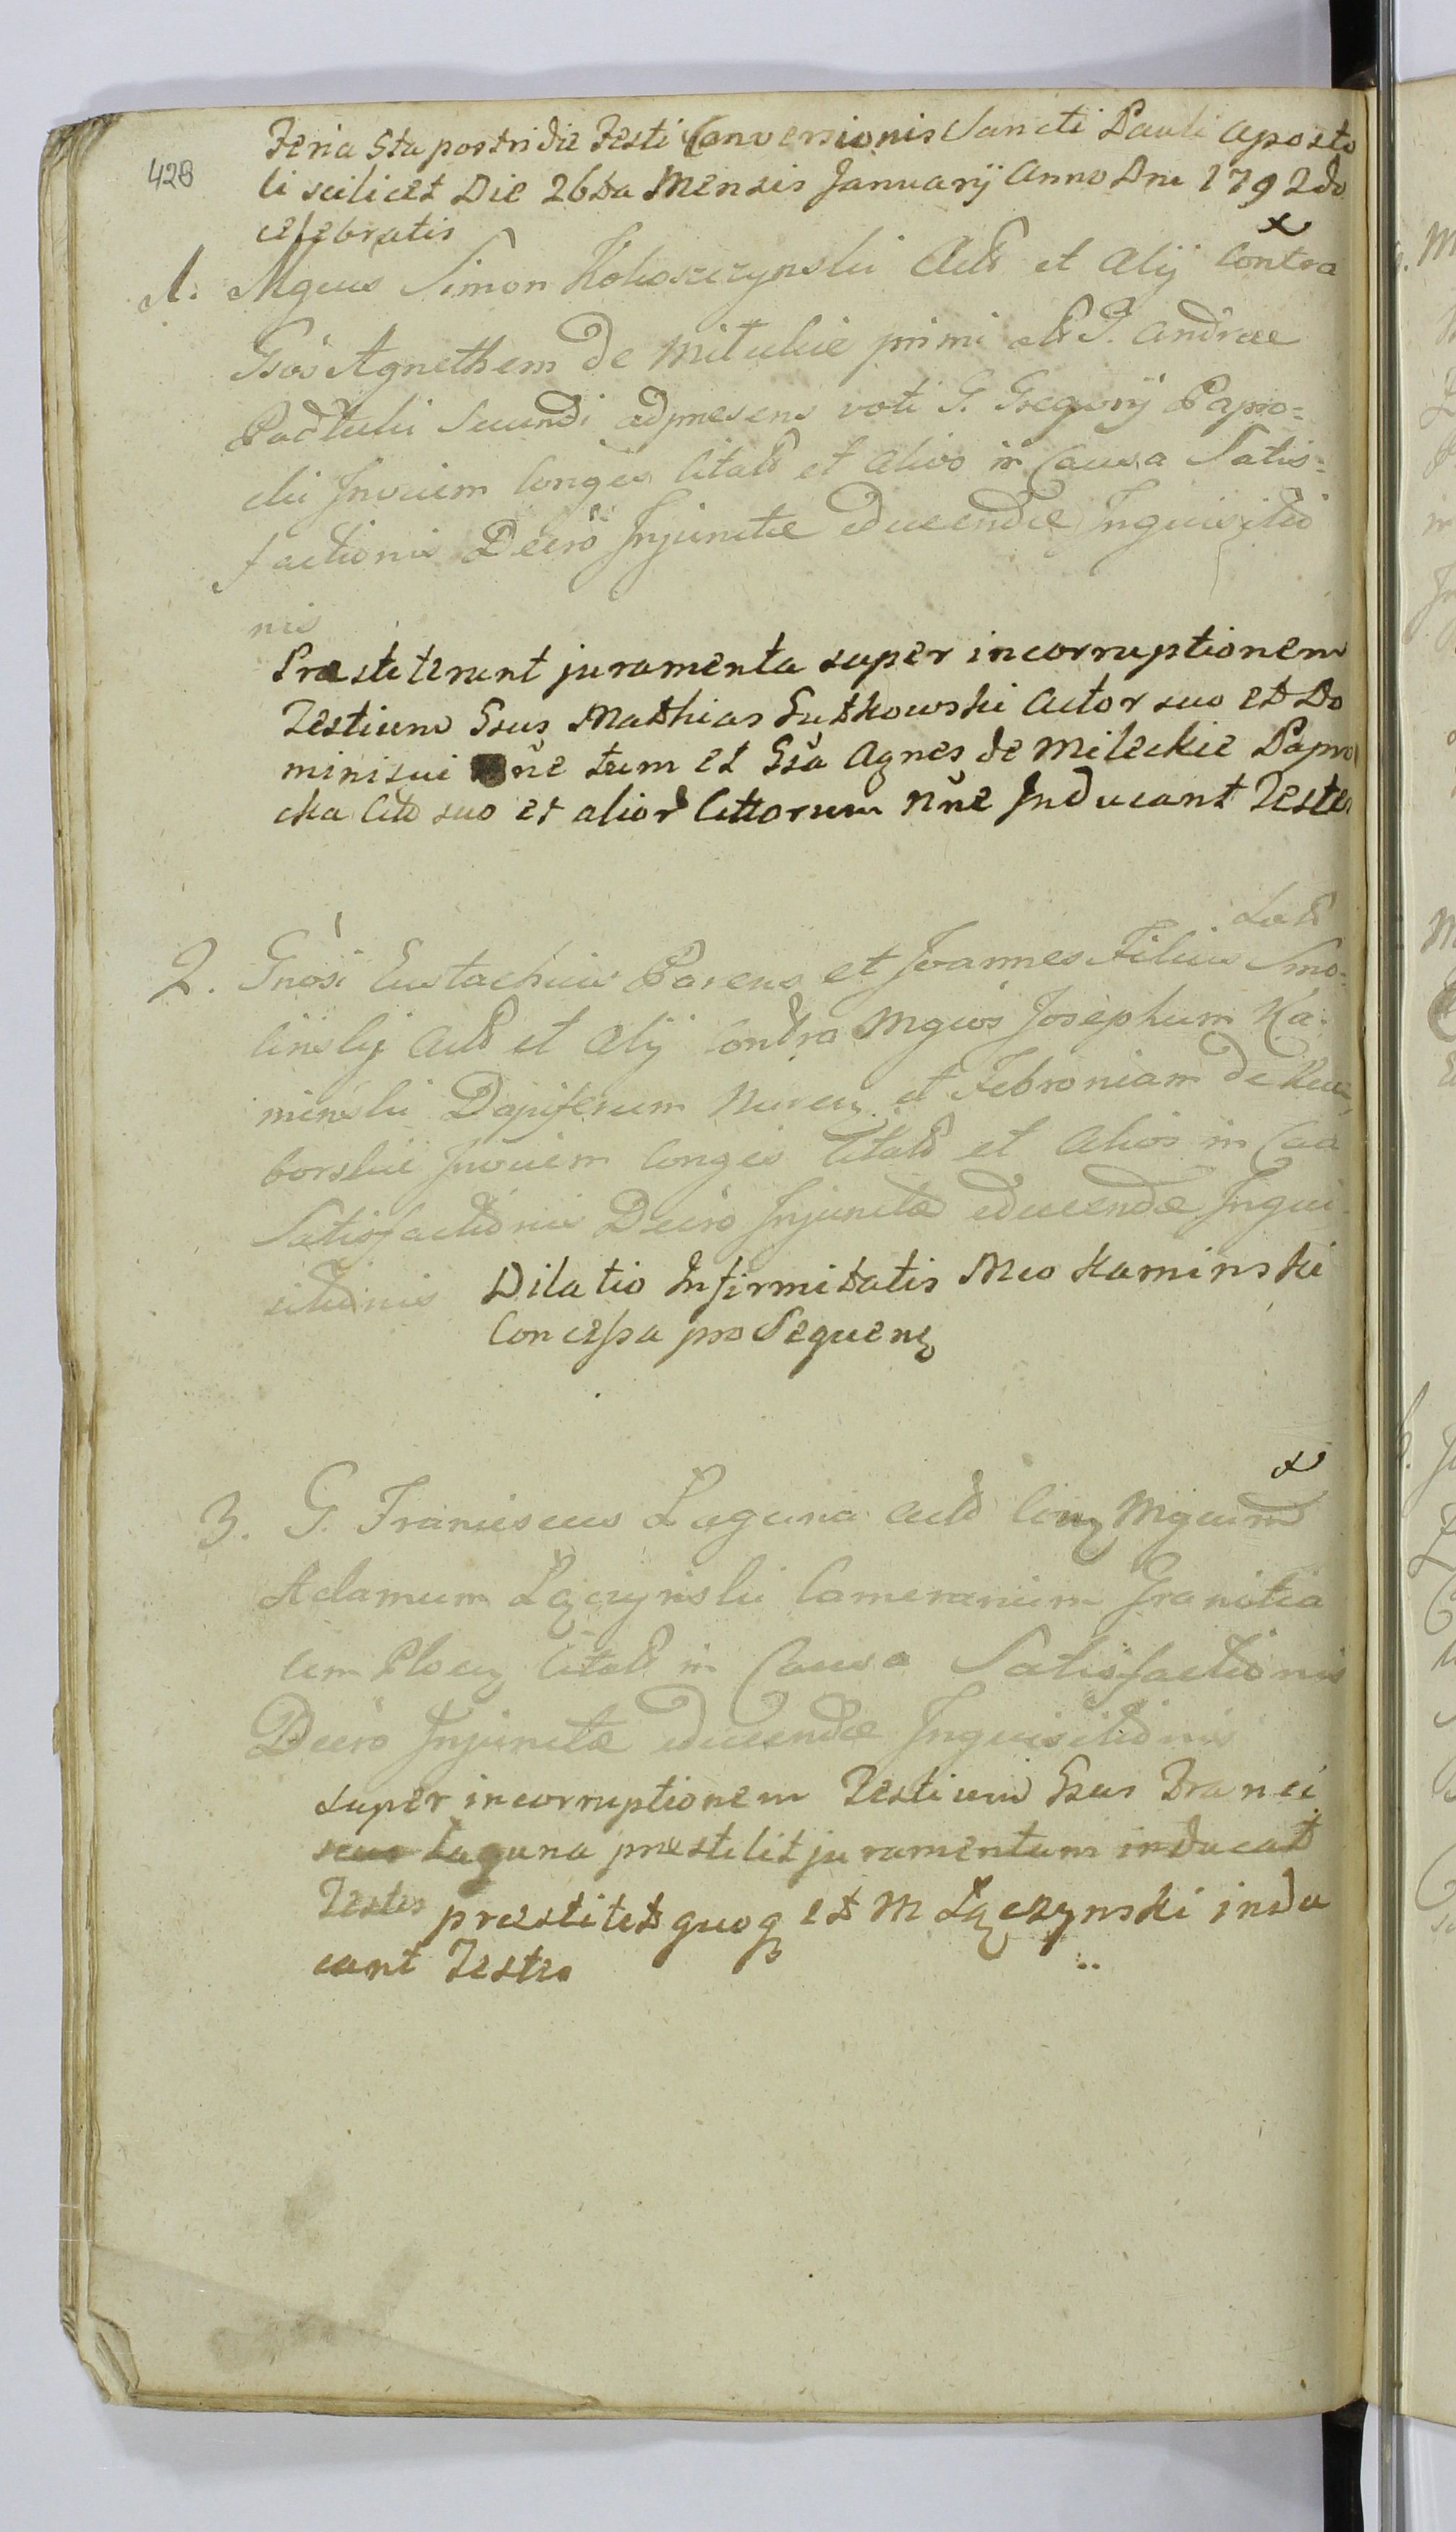 428
Feria 5ta postridie Festi Conversionis Sancti Pauli Aposto
li scilicet Die 26ta Mensis Januarij Anno Dni 1792do
celebratis
x
1. Mgcus Simon Kokoszczynski Actr et Alij Contra
Gsos Agnethem de Miłuckie primi olr G. Andreae
Pacłucki Secundi ad presens voti G. Gregorij Papro=
cki Invicem Conges Citatr et Alios in Causa Satis=
factionis Decro Injunctæ educendæ Inquisitio
nis
Præstiterunt juramenta super incorruptionem
Testium Gsus Mathias Gutkowski Actor suo et Do
mini sui nne tum et Gsa Agnes de Mileckie Papro
cka Citt suo et aliorr Cittorum nne Inducant Testes
Latr
2. Gnosi Eustachius Parens et Joannes Filius Smo=
linsky Actr et Alij Contra Mgcos Josephum Ka=
minski Dapiferum Nuren et Febroniam de
borskie Invicem Conges Citatr et Alios in Caa
Satisfactionis Decro Injunctæ educendæ Inqui=
sitionis Dilatio Infirmitatis Mco Kaminski
Concessa pro Sequen
x
3. G. Franciscus Laguna Actr Con Mgcum
Adamum Łączynski Camerarium Granitia
lem Plocen Citatr in Causa Satisfactionis
Decro Injunctæ educendæ Inquisitionis
super incorruptionem Testium Gsus Franci
scus Laguna præstitit juramentum inducat
Testes præstitit quoq et M Łączynski indu
cant Testes